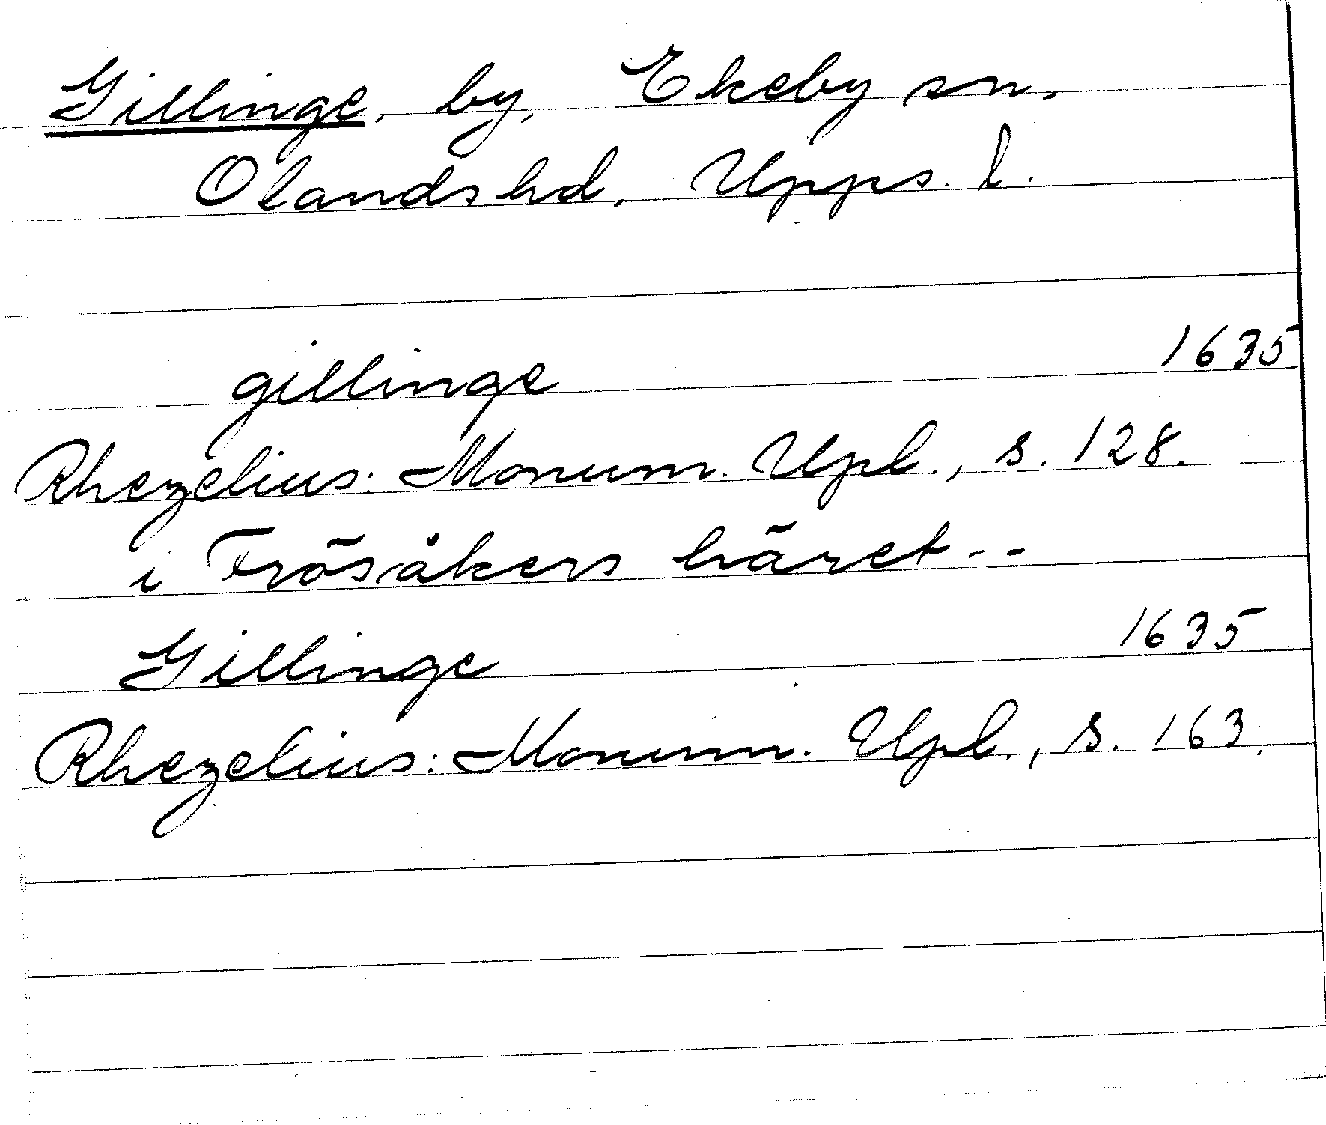 Gillinge, by, Ekeby sn,
Olands hd, Upps. l.
gillinge 1635
Rhezelius: Monum. Upl., s. 128.
i Frösåkers häret --
Gillinge 1635
Rhezelius: Monum. Upl., s. 163.